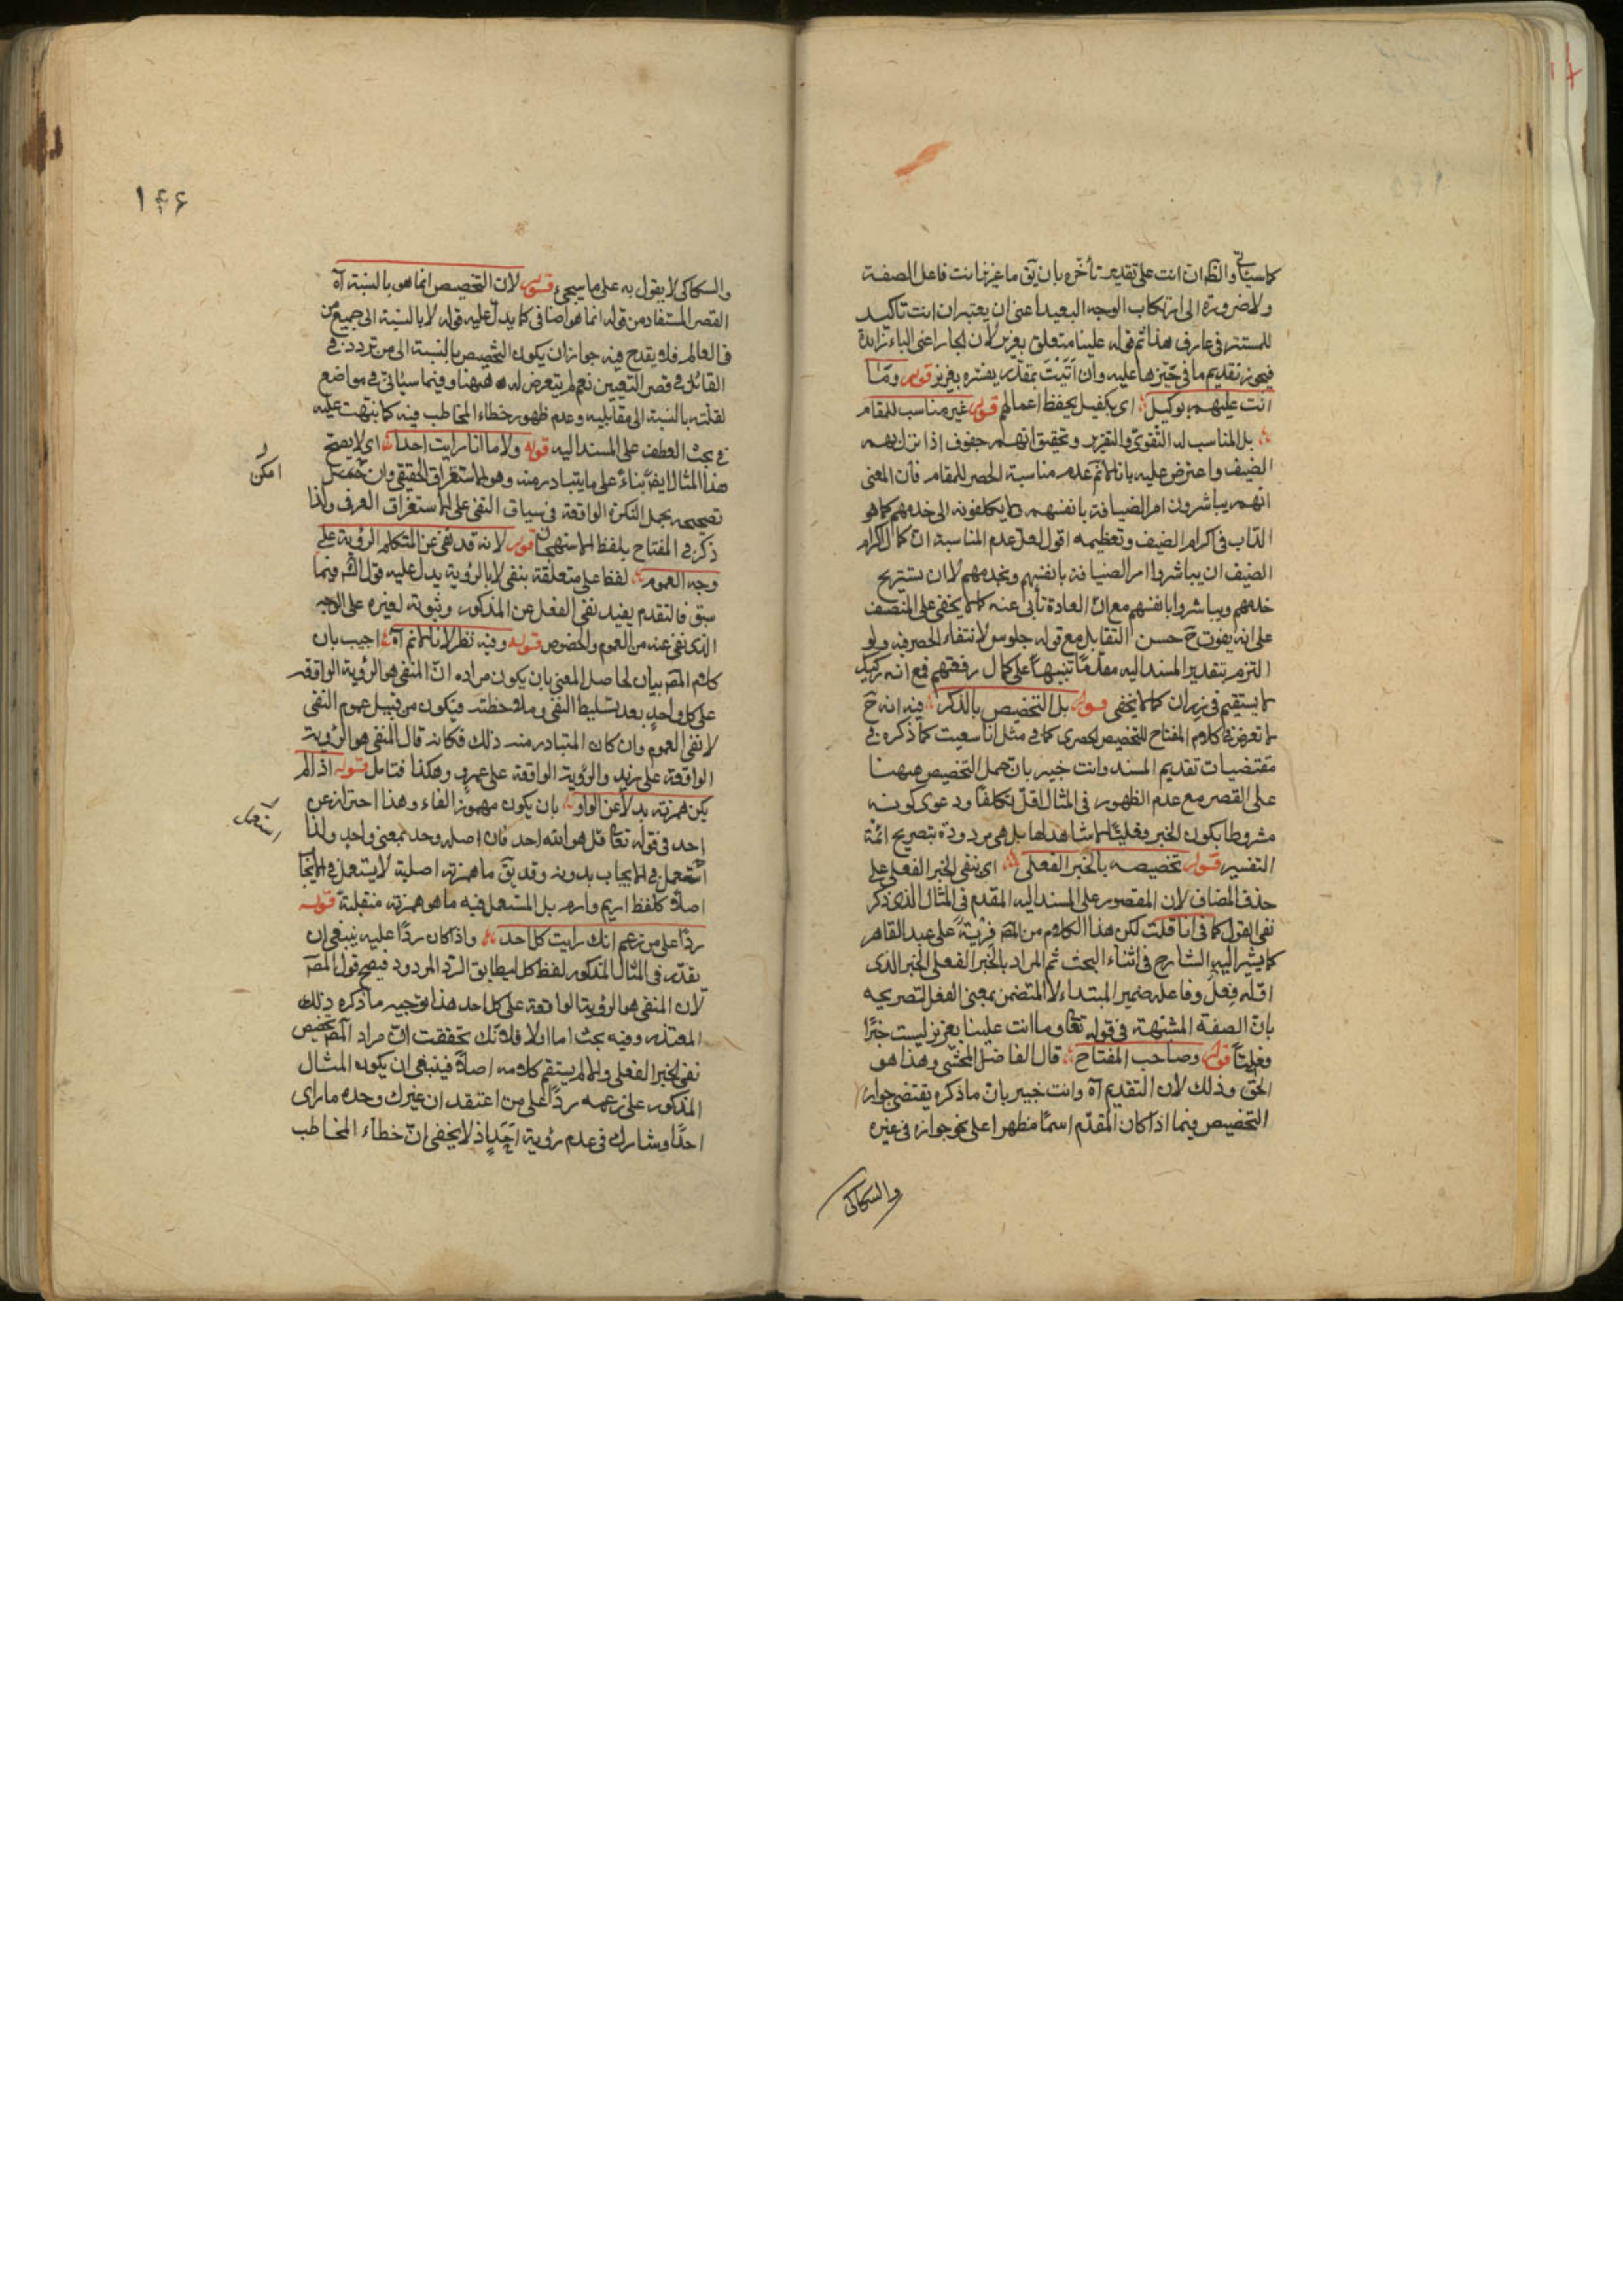 كما سيأتى والظ ان انت على تقدير تأخره بان يق ما عزيز انت فاعل الصفة
ولا ضرورة الى ارتكاب الوجه البعيد اعنى ان يعتبر ان انت تاكيد
للمستتر فى عارف هذا ثم قوله علينا متعلق بعزيز لان الجار اعنى الباء زايدة
فيجوز تقديم ما فى حيزها عليه وان ابيت بمقدر يفسره بعزيز قوله وما
انت عليهم بوكيل اى بكفيل يحفظ اعمالهم قوله غير مناسب للمقام
بل المناسب له التقوى والتقرير وتحقيق انهم جفوف اذا نزل بهم
الضيف واعترض عليه بانا لانم عدم مناسبة الحصر للمقام فان المعنى
انهم يباشرون امر الضيافة بانفسهم ولا يكلفونه الى خدمهم كما هو
الداب فى اكرام الضيف وتعظيمه اقول لعل عدم المناسبة ان كمال اكرام
الضيف ان يباشروا امر الضيافة بانفسهم وبخدمهم لا ان يستريح
خدمهم ويباشروا بانفسهم مع ان العادة تأبى عنه كما لا يخفى على المنصف
على انه يفوت ح حسن التقابل مع قوله جلوس لانتفاء الحصر فيه ولو
التزم بتقدير المسند اليه مقدما تنبيها على كمال رفعتهم فمع انه ركيك
لا يستقيم فى رزان كما لا يخفى قوله بل التخصيص بالذكر فيه انه ح
لا تعرض فى كلام المفتاح للتخصيص الحصرى كما فى مثل انا سعيت كما ذكره فى
مقتضيات تقديم المسند وانت خبير بان حمل التخصيص ههنا
على القصر مع عدم الظهور فى المثال اقل تكلفا ودعوى كونه
مشروطا بكون الخبر فعليا لا شاهد لها بل هى مردودة بتصريح ائمة
التفسير قوله تخصيصه بالخبر الفعلى اى بنفى الخبر الفعلى على
حذف المضاف لان المقصور على المسند اليه المقدم فى المثال الذى ذكر
نفى القول كما فى انا قلت لكن هذا الكلام من المص فرية على عبد القاهر
كما يشير اليه الشارح فى اثناء البحث ثم المراد بالخبر الفعلى الخبر الذى
اوله فعل وفاعله ضمير المبتداء لا المتضمن بمعنى الفعل لتصريحه
بان الصفة المشبهة فى قوله تعا وما انت علينا بعزيز ليست خبرا
فعليا قوله وصاحب المفتاح قال الفاضل المحشى وهذا هو
الحق وذلك لان التقديم آه وانت خبير بان ما ذكره يقتضى جواز
التخصيص فيما اذا كان المقدم اسما مظهرا على نحو جوازه فى غيره
والسكاكى
١٤٦
والسكاكى لا يقول به على ما سيجئ قوله لان التخصيص انما هو بالنسبة آه
القصر المستفاد من قوله انما هو اضافى كما يدل عليه قوله لا بالنسبة الى جميع من
فى العالم فلا يقدح فيه جواز ان يكون التخصيص بالنسبة الى من تردد فى
القائل فى قصر التعيين نعم لم يتعرض له ههنا وفيما سيأتى فى مواضع
لقلته بالنسبة الى مقابليه وعدم ظهور خطاء المخاطب فيه كما نبهت عليه
فى بحث العطف على المسند اليه قوله ولا ما انا رايت احدا اى لا يصح
هذا المثال ايضا بناء على ما يتبادر منه وهو الاستغراق الحقيقى وان
امكن
تصحيحه بحمل النكرة الواقعة فى سياق النفى على الاستغراق العرفى ولذا
ذكر فى المفتاح بلفظ الاستهجان قوله لانه قد نفى عن المتكلم الرؤية على
وجه العموم لفظا على متعلقة بنفى لا بالرؤية يدل عليه قول الش فيما
سبق فالتقدم يفيد نفى الفعل عن المذكور وثبوته لغيره على الوجه
الذى نفى عنه من العموم والخصوص قوله وفيه نظر لانا لانم آه اجيب بان
كلام المص بيان لحاصل المعنى بان يكون مراده ان المنفى هو الرؤية الواقعة
على كل واحد بعد تسليط النفى وملاحظته فيكون من قبيل عموم النفى
لا نفى العموم وان كان المتبادر منه ذلك فكانه قال المنفى هو الرؤية
الواقعة على زيد والرؤية الواقعة على عمرو وهكذا فتامل قوله اذا لم
يكن همزته بدلا عن الواو بان يكون مهموز الفاء وهذا احتراز عن
احد فى قوله تعا قل هو الله احد فان اصله وحد بمعنى واحد ولذا
استعمل
استعمل فى الايجاب بدونه وقد يق ما همزته اصلية لا يستعمل فى الايجاب
اصلا كلفظ اريم وارم بل المستعمل فيه ما هو همزته منقلبة قوله
ردا على من زعم انك رايت كل احد واذا كان ردا عليه ينبغى ان
يقدر فى المثال المذكور لفظ كل ليطابق الرد المردود فيصح قول المص
لان المنفى هو الرؤية الواقعة على كل احد هذا توجيه ما ذكره ذلك
المعتذر وفيه بحث اما اولا فلانك تحققت ان مراد المص تخصيص
نفى الخبر الفعلى والا لم يستقم كلامه اصلا فينبغى ان يكون المثال
المذكور على زعمه ردا على من اعتقد ان غيرك وحده ما راى
احدا وشارك فى عدم رؤية احد اذ لا يخفى ان خطاء المخاطب